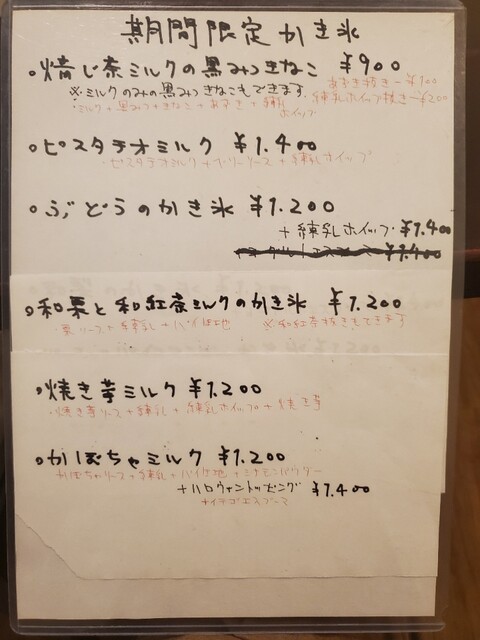 期間限定かき氷
・焙じ茶ミルクの黒みつきなこ ¥900
※ミルクのみの黒みつきなこもできます. あずき抜き-¥100
・ミルク+黒みつ+きなこ+あずき+練乳ホイップ 練乳ホイップ抜き-¥200
・ピスタチオミルク ¥1.400
・ピスタチオミルク+ベリーソース+練乳ホイップ
・ぶどうのかき氷 ¥1.200
+練乳ホイップ ¥1.400
¥1.400
・和栗と和紅茶ミルクのかき氷 ¥1.200
栗ソース+練乳+パイ生地 ※和紅茶抜きもできます
・焼き芋ミルク ¥1.200
・焼き芋ソース+練乳+練乳ホイップ+焼き芋
・かぼちゃミルク ¥1.200
かぼちゃソース+練乳+パイ生地+シナモンパウダー
+ハロウィントッピング ¥1.400
+イチゴエスプーマ